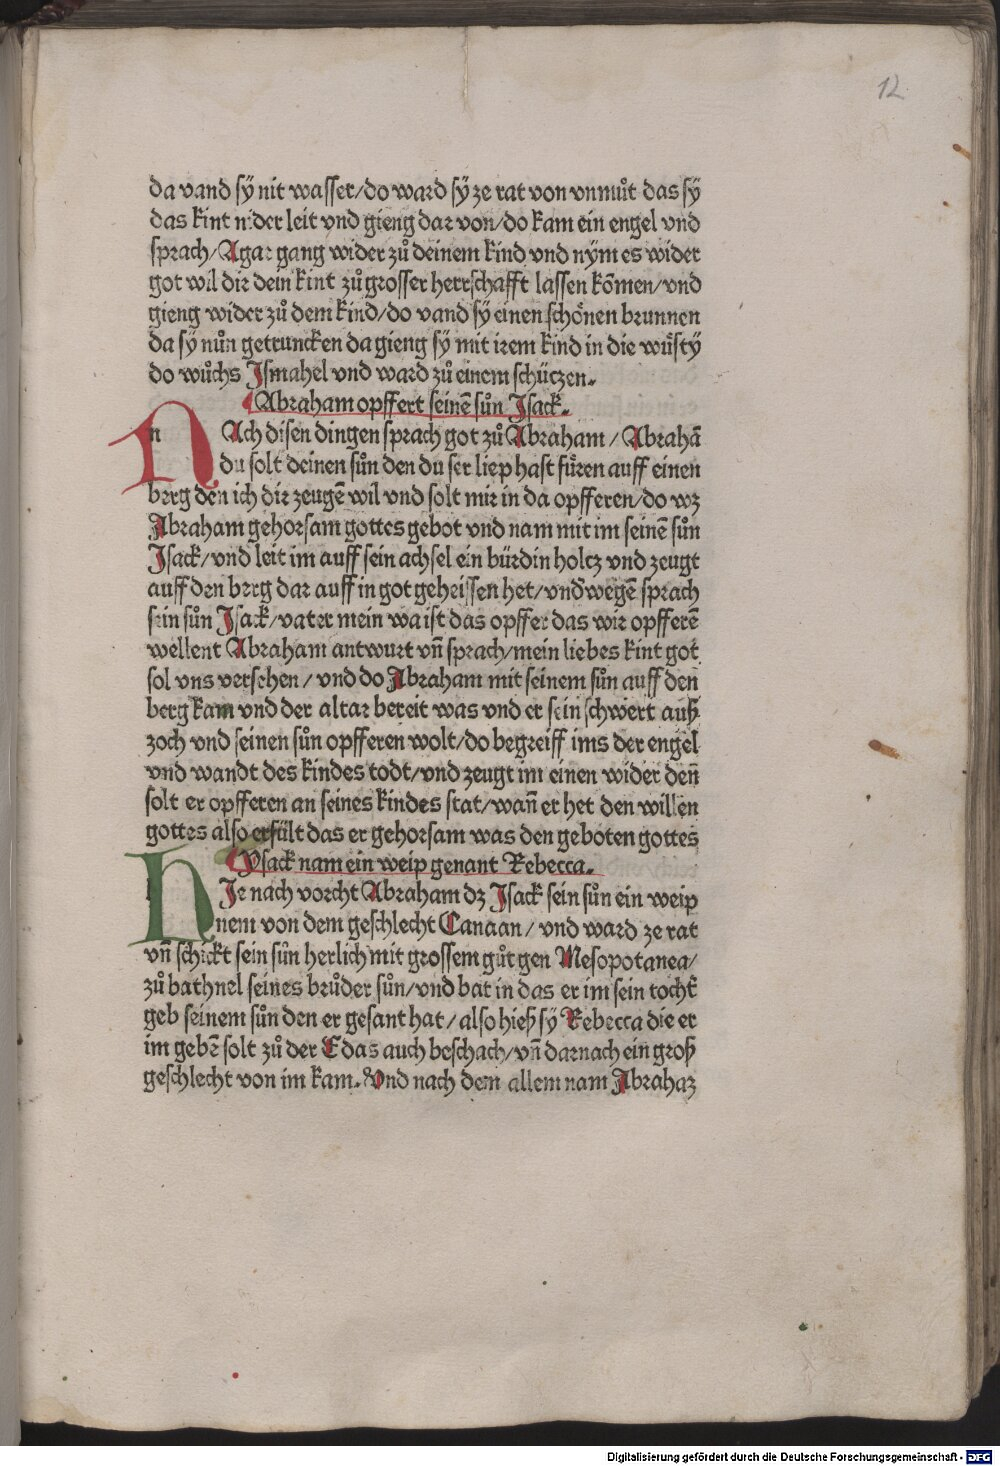 12
da vand sÿ nit wasser/do ward sÿ ze rat von vnmůt das sÿ
das kint nider leit vnd gieng dar von/do kam ein engel vnd
sprach/Agar gang wider zů deinem kind vnd nÿm es wider
got wil dir dein kint zů grosser herrschafft lassen kōmen/vnd
gieng wider zů dem kind/do vand sÿ einen schönen brunnen
da sÿ nůn getruncken da gieng sÿ mit irem kind in die wůsty
do wůchs Ismahel vnd ward zů einem schüczen.
Abraham opffert seinē sůn Isack.
n Ach disen dingen sprach got zů Abraham / Abrahā
du solt deinen sůn den du ser liep hast füren auff einen
berg den ich dir zeugē wil vnd solt mir in da opfferen/do wz
Abraham gehorsam gottes gebot vnd nam mit im seinē sůn
Isack/vnd leit im auff sein achsel ein bürdin holcz vnd zeugt
auff den berg dar auff in got geheissen het/vnd wegē sprach
sein sůn Isack/vater mein wa ist das opffer das wir opfferē
wellent Abraham antwurt vn̄ sprach/mein liebes kint got
sol vns versehen / vnd do Abraham mit seinem sůn auff den
berg kam vnd der altar bereit was vnd er sein schwert auß
zoch vnd seinen sůn opfferen wolt/do begreiff ims der engel
vnd wandt des kindes todt/vnd zeugt im einen wider den̄
solt er opfferen an seines kindes stat/wan̄ er het den willen
gottes also erfült das er gehorsam was den geboten gottes
Ysack nam ein weip genant Rebecca.
h Ie nach vorcht Abraham dz Isack sein sůn ein weip
nem von dem geschlecht Canaan / vnd ward ze rat
vn̄ schickt sein sůn herlich mit grossem gůt gen Mesopotanea/
zů bathnel seines brůder sůn/vnd bat in das er im sein tochť
geb seinem sůn den er gesant hat/also hieß sÿ Rebecca die er
im gebē solt zů der E das auch beschach/vn̄ darnach ein groß
geschlecht von im kam. Vnd nach dem allem nam Abrahaz
Digitalisierung gefördert durch die Deutsche Forschungsgemeinschaft - DFG